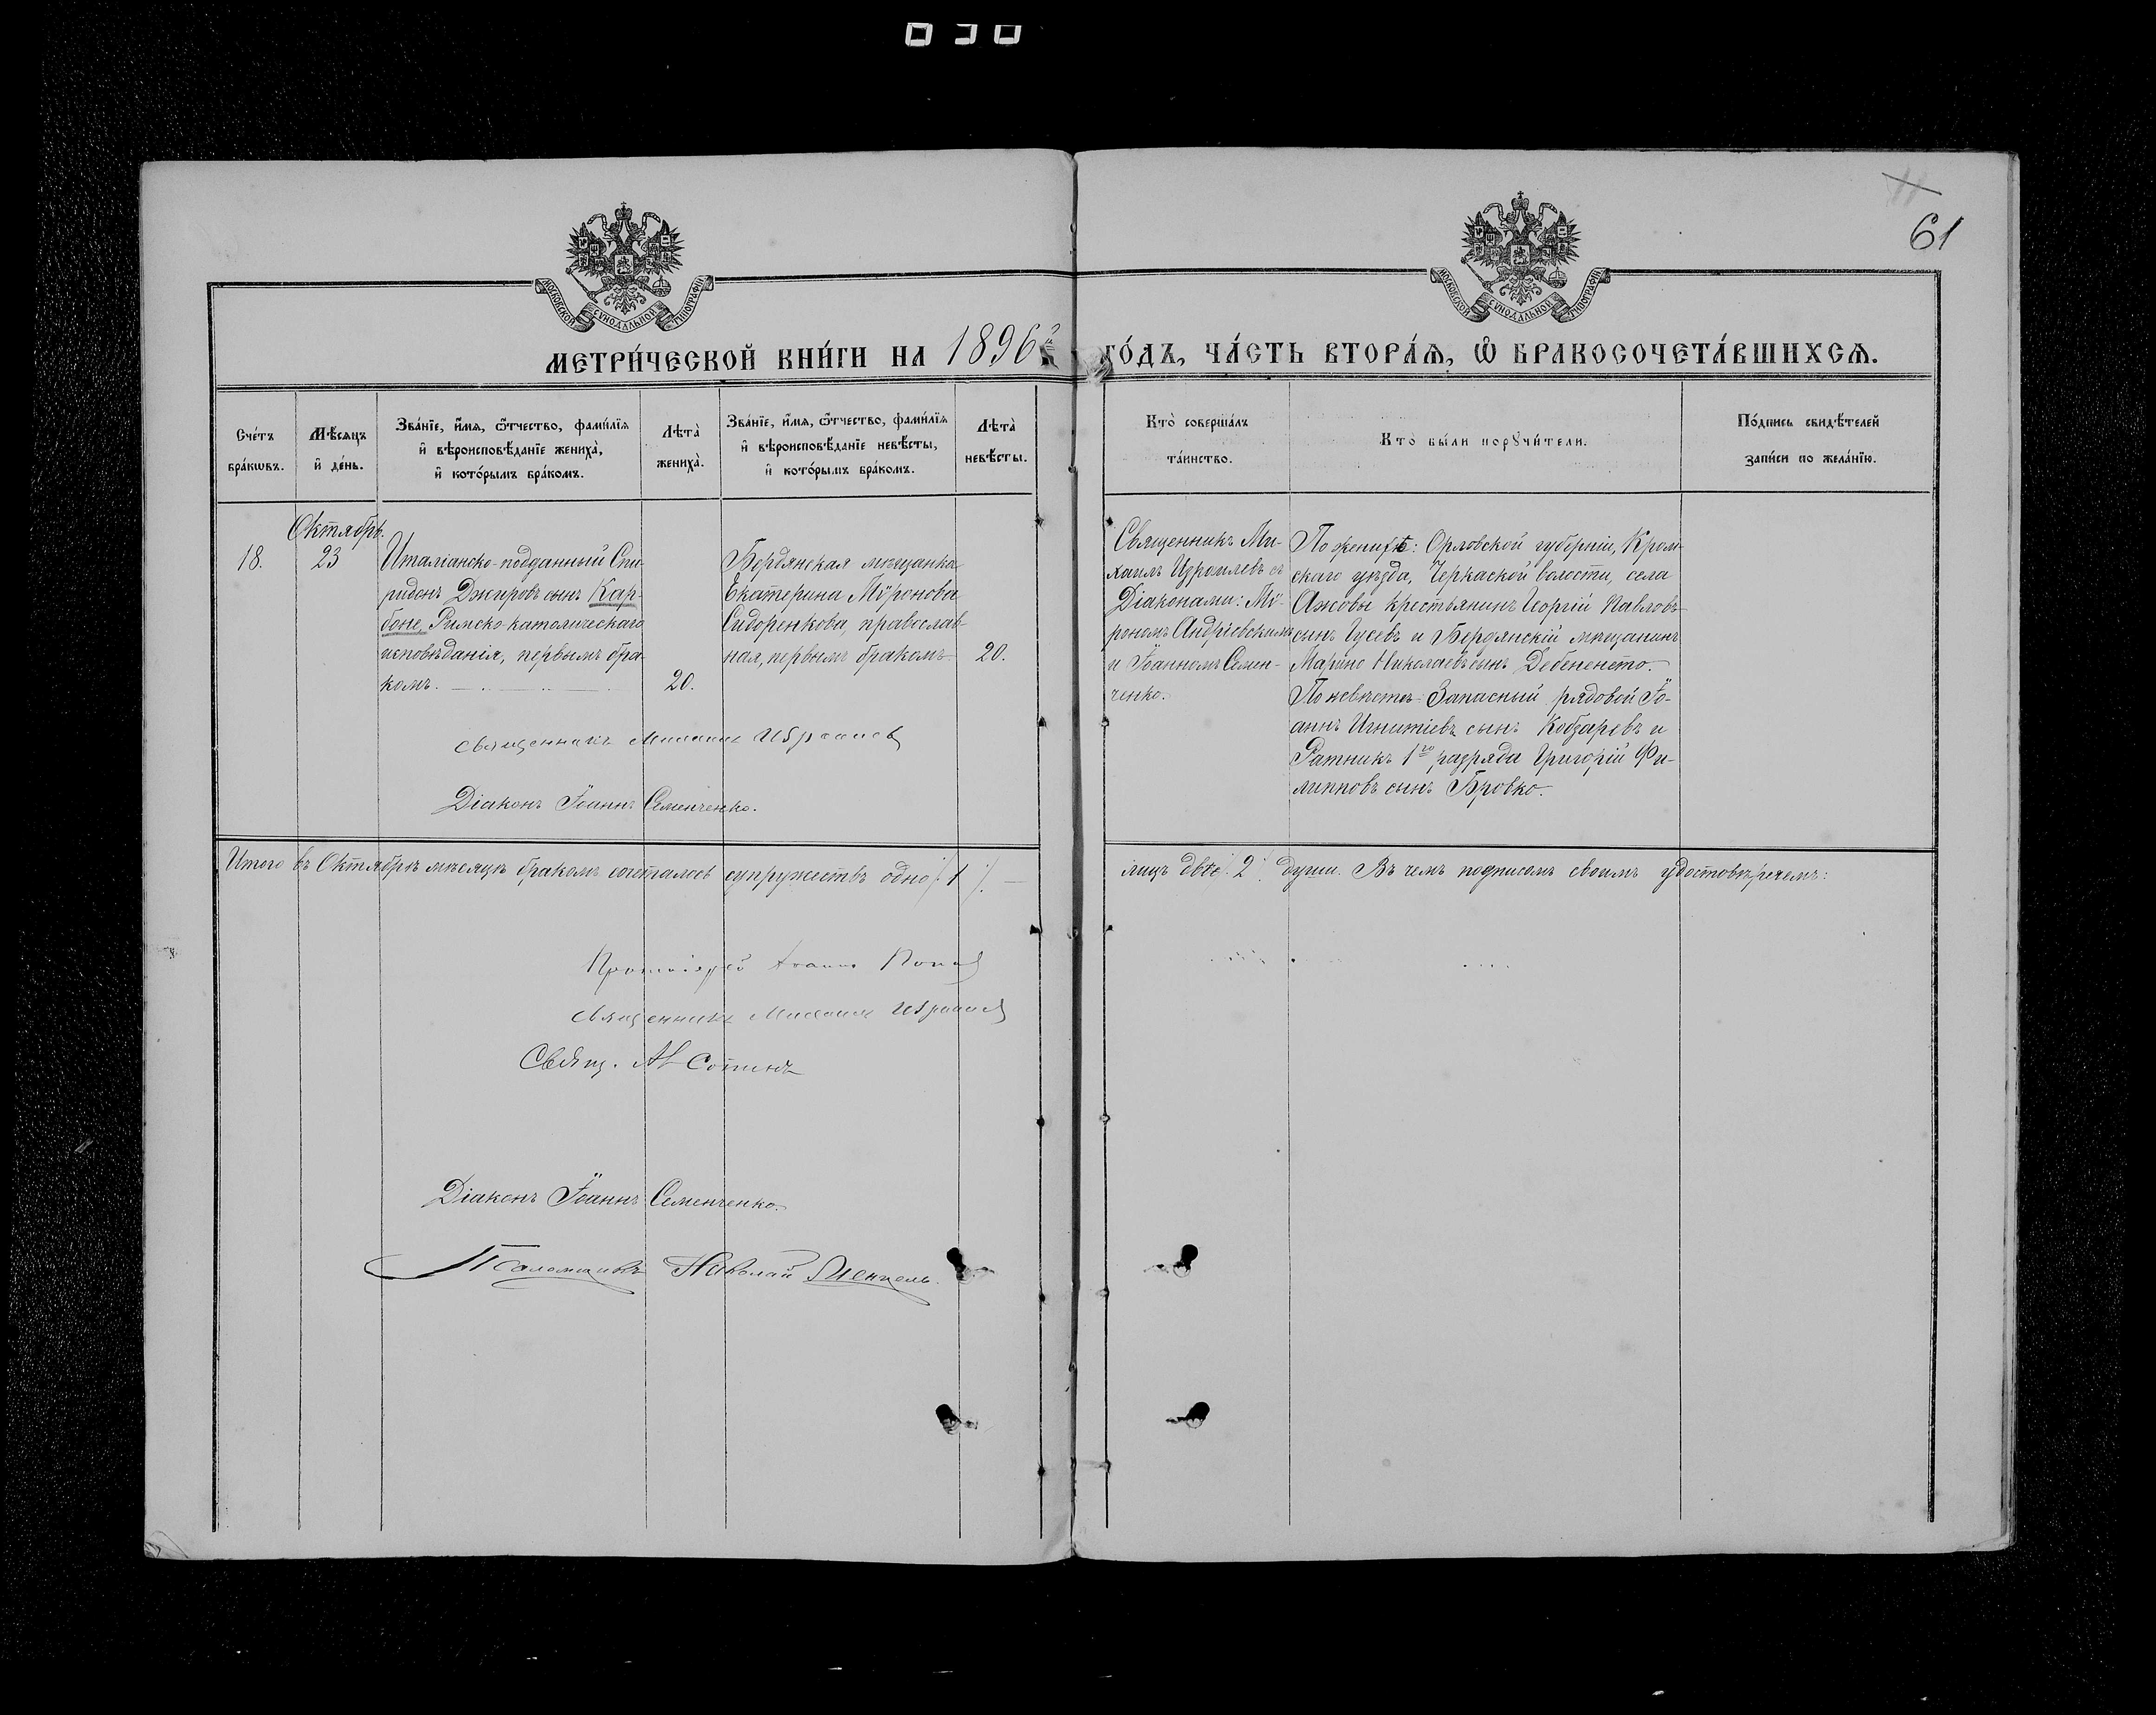 61
МОСКОВСКОЙ СѴНОДАЛЬНОЙ ТИПОГРАФІИ
МОСКОВСКОЙ СѴНОДАЛЬНОЙ ТИПОГРАФІИ
МЕТРИ́ЧЕСКОЙ КНИ́ГИ НА 1896й ГО́ДЪ, ЧА́СТЬ ВТОРА́Ѧ, Ѽ БРАКОСОЧЕТА́ВШИХСѦ.
Сче́тъ
бра́кѡвъ.
Мѣ́сяцъ
и҆ де́нь.
Зва́нїе, и҆́мя, ѻ҆́тчество, фами́лїя
и҆ вѣроисповѣ́данїе жениха̀,
и҆ кото́рымъ бра́комъ.
Лѣта̀
жениха̀.
Зва́нїе, и҆́мя, ѻ҆́тчество, фами́лїя
и҆ вѣроисповѣ́данїе невѣ́сты,
и҆ кото́рымъ бра́комъ.
Лѣта̀
невѣ́сты.
Кто̀ соверша́лъ
та́инство.
Кто̀ бы́ли порꙋчи́тели.
По́дпись свидѣ́телей
за́писи по жела́нїю.
Октябрь.
18.
23
Италіанско-подданный Спи-
ридонъ Джировъ сынъ Кар-
боне, Римско-католическаго
исповѣданія, первымъ бра-
комъ.
20.
Бердянская мѣщанка
Екатерина Мѵронова
Сидоренкова, православ-
ная, первымъ бракомъ
20.
Священникъ Ми-
хаилъ Изромлевъ съ
Діаконами: Мѵ-
рономъ Андріевскимъ
и Іоанномъ Семен-
ченко.
По женихѣ: Орловской губерніи, Кром-
скаго уѣзда, Черкаской волости, села
Ажовы крестьянинъ Георгій Павловъ
сынъ Гусевъ и Бердянскій мѣщанинъ
Марино Николаевъ сынъ Дебененсто.
По невѣстѣ: Запасный рядовой Іо-
аннъ Игнатіевъ сынъ Кобзаревъ и
Ратникъ 1го разряда Григорій Фи-
липповъ сынъ Бровко.
Священникъ Михаилъ
Діаконъ Іоаннъ Семенченко.
Итого въ Октябрѣ мѣсяцѣ бракомъ сочеталось супружествъ одно /. 1 /. лицъ двѣ /. 2 /. души. Въ чемъ подписомъ своимъ удостовѣряемъ:
Протоіерей Іоаннъ Поповъ
Священникъ Михаилъ
Свящ.
Діаконъ Іоаннъ Семенченко.
Псаломщикъ Николай